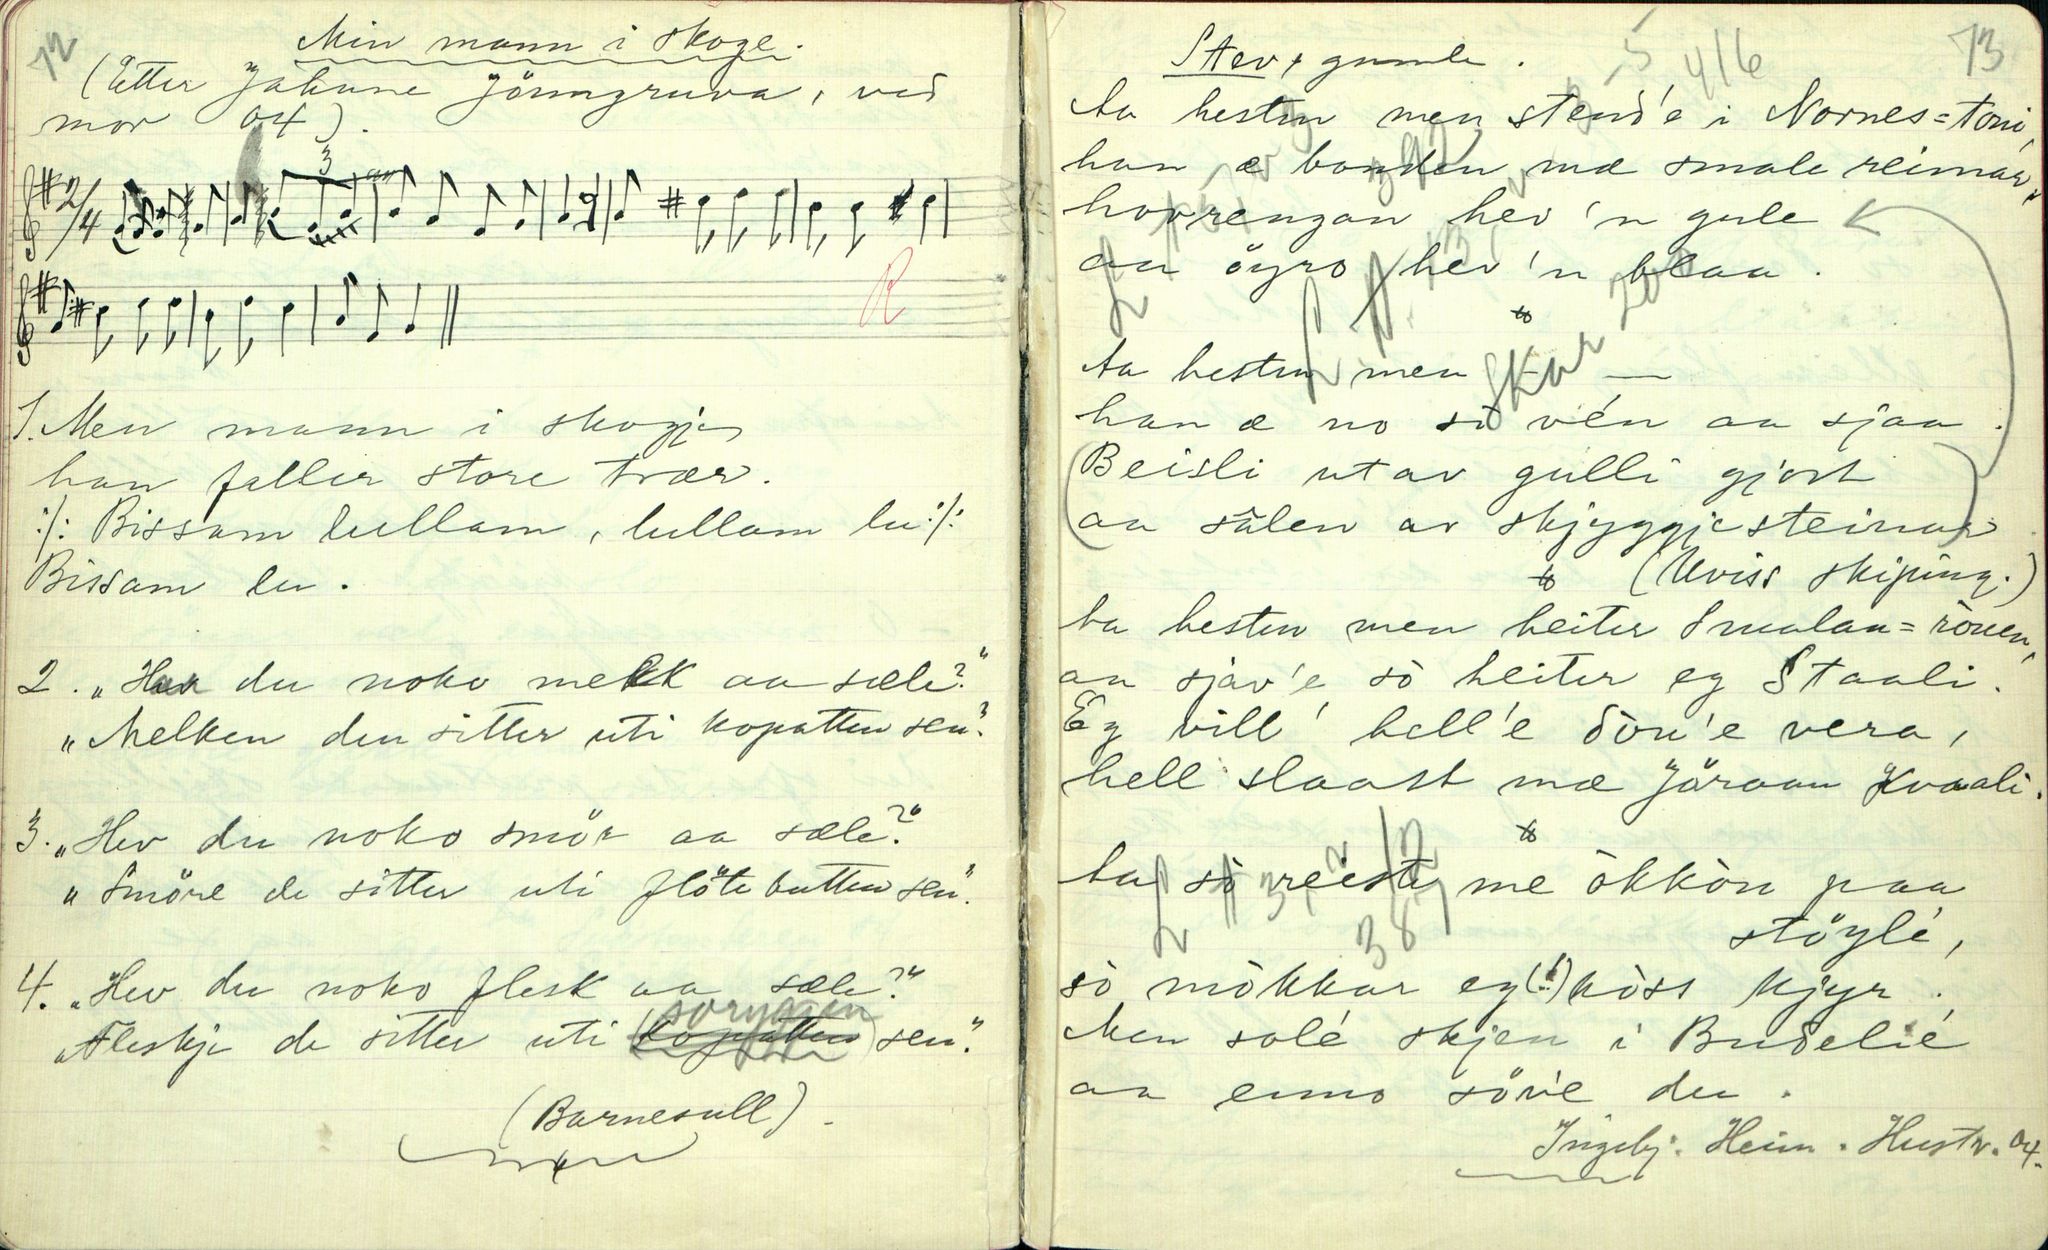 12
Min mann i skoge.
(Etter Jakume Jönngruva, ved
mor 04).
2/4
3
R
1. Men mann i skogje
han feller store trær.
:/: Bissam lullam, lullam lu :/:
Bissam lu.
2. "Hev du noko melkk aa sæle?"
"Melken den sitter uti kopatten sen"
3. "Hev du noko smör aa sæle?"
"Smöre de sitter uti flötebutten sen".
4. "Hev du noko flesk aa sæle?"
soryggen
"Fleskje de sitter uti (kopatten) sen".
(Barnesull).
13
Stev, gamle.
416
Aa hesten men stend'e i Nornes=toni,
han æ bonden mæ smale reimar,
hovrengan hev'n gule
aa öyro hev'n blaa.
Skar
Aa hesten men — —
han æ no sò vén aa sjaa.
(Beisli utav gulli gjort
aa sålen av skjyggjesteinar)
(Uviss skiping.)
Aa hesten men heiter Smalan=ròuen,
aa sjav'e sò heiter eg Staali.
Eg vill' hell'e dòu'e vera,
hell slaast mæ Jöraan Kvaali.
Aa sò reiste me òkkòn paa
stöylé,
sò mòkkar eg (!) kòss kjyr.
Men solé skjen i Budelié
aa enno söv'e du.
387
Ingebj. Heim. Hustv. 04.